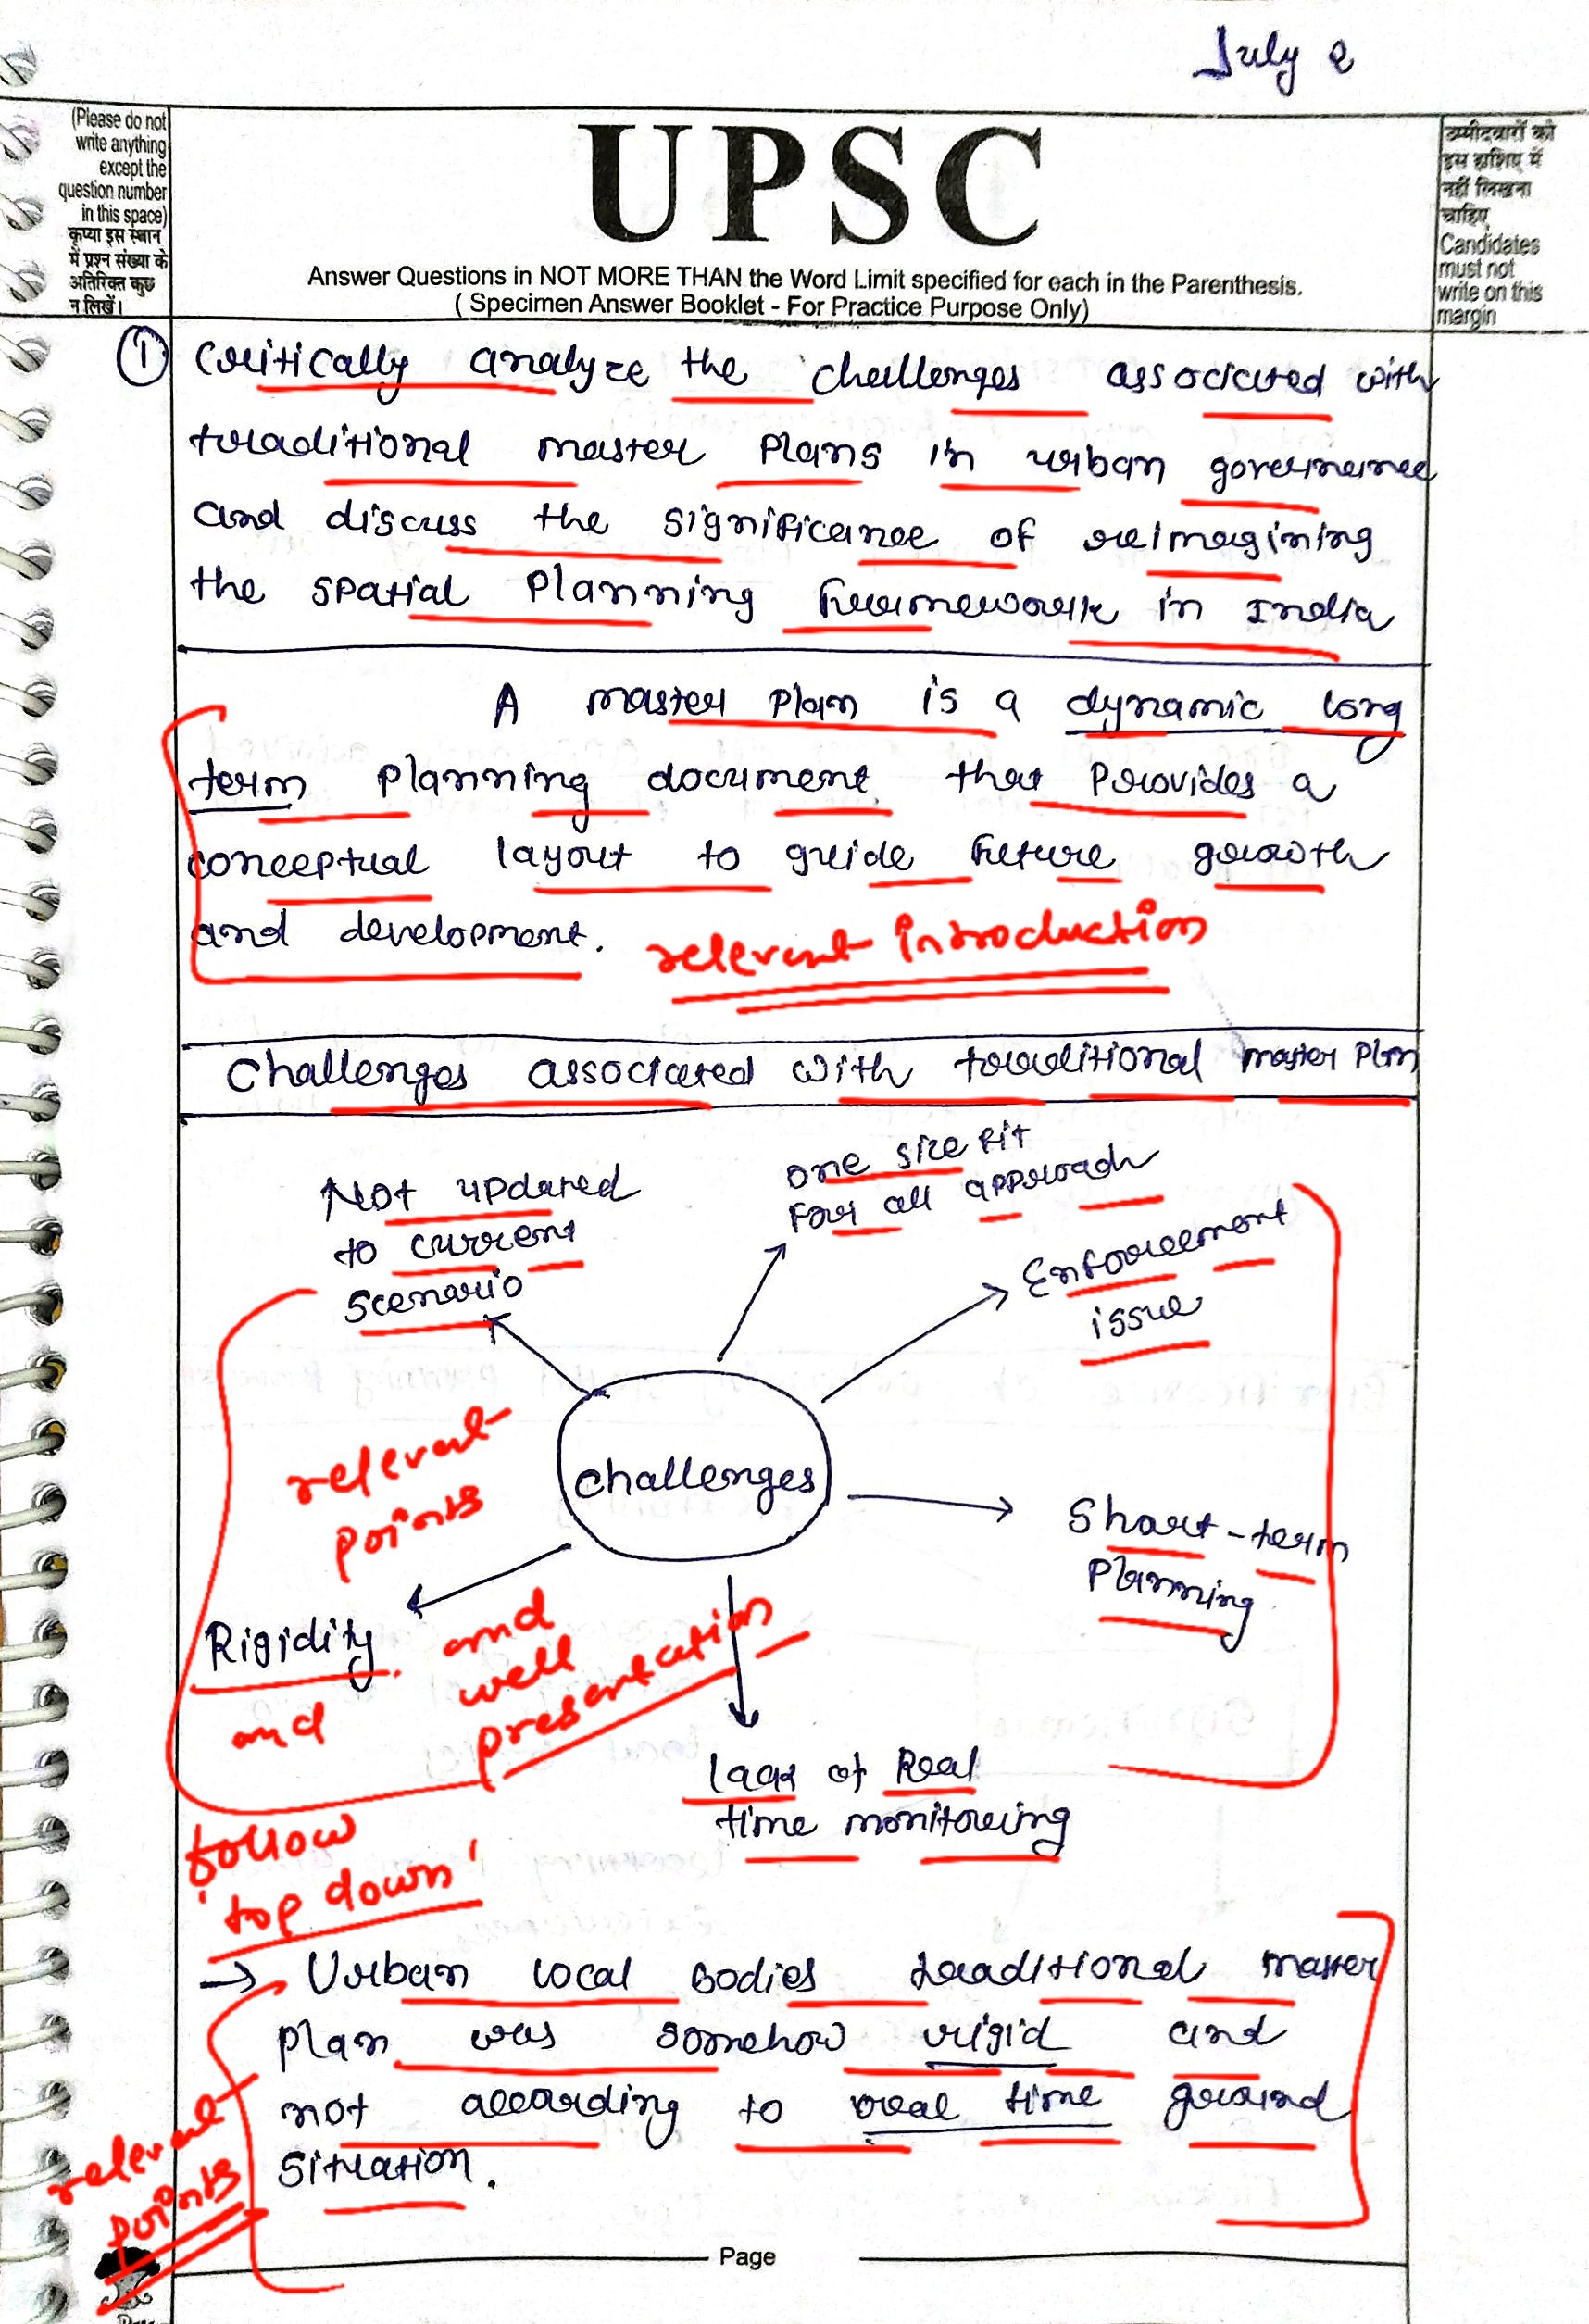 July 2
(Please do not
write anything
except the
question number
in this space)
कृप्या इस स्थान
में प्रश्न संख्या के
अतिरिक्त कुछ
न लिखें।
UPSC
Answer Questions in NOT MORE THAN the Word Limit specified for each in the Parenthesis.
( Specimen Answer Booklet - For Practice Purpose Only)
उम्मीदवारों को
इस हाशिए में
नहीं लिखना
चाहिए
Candidates
must not
write on this
margin
1 Critically analyze the challenges associated with
traditional master plans in urban governance
and discuss the significance of reimagining
the spatial planning framework in India
A master plan is a dynamic long
term planning document that provides a
conceptual layout to guide future growth
and development.
relevant introduction
Challenges associated with traditional master plan
Not updated
to current
scenario
one size fit
for all approach
Enforcement
issue
challenges
Short-term
planning
Rigidity
lack of Real
time monitoring
relevant
points
and
well
presentation
and
follow
'top down'
→ Urban local bodies traditional master
plan was somehow rigid and
not according to real time ground
situation.
relevant
points
Page